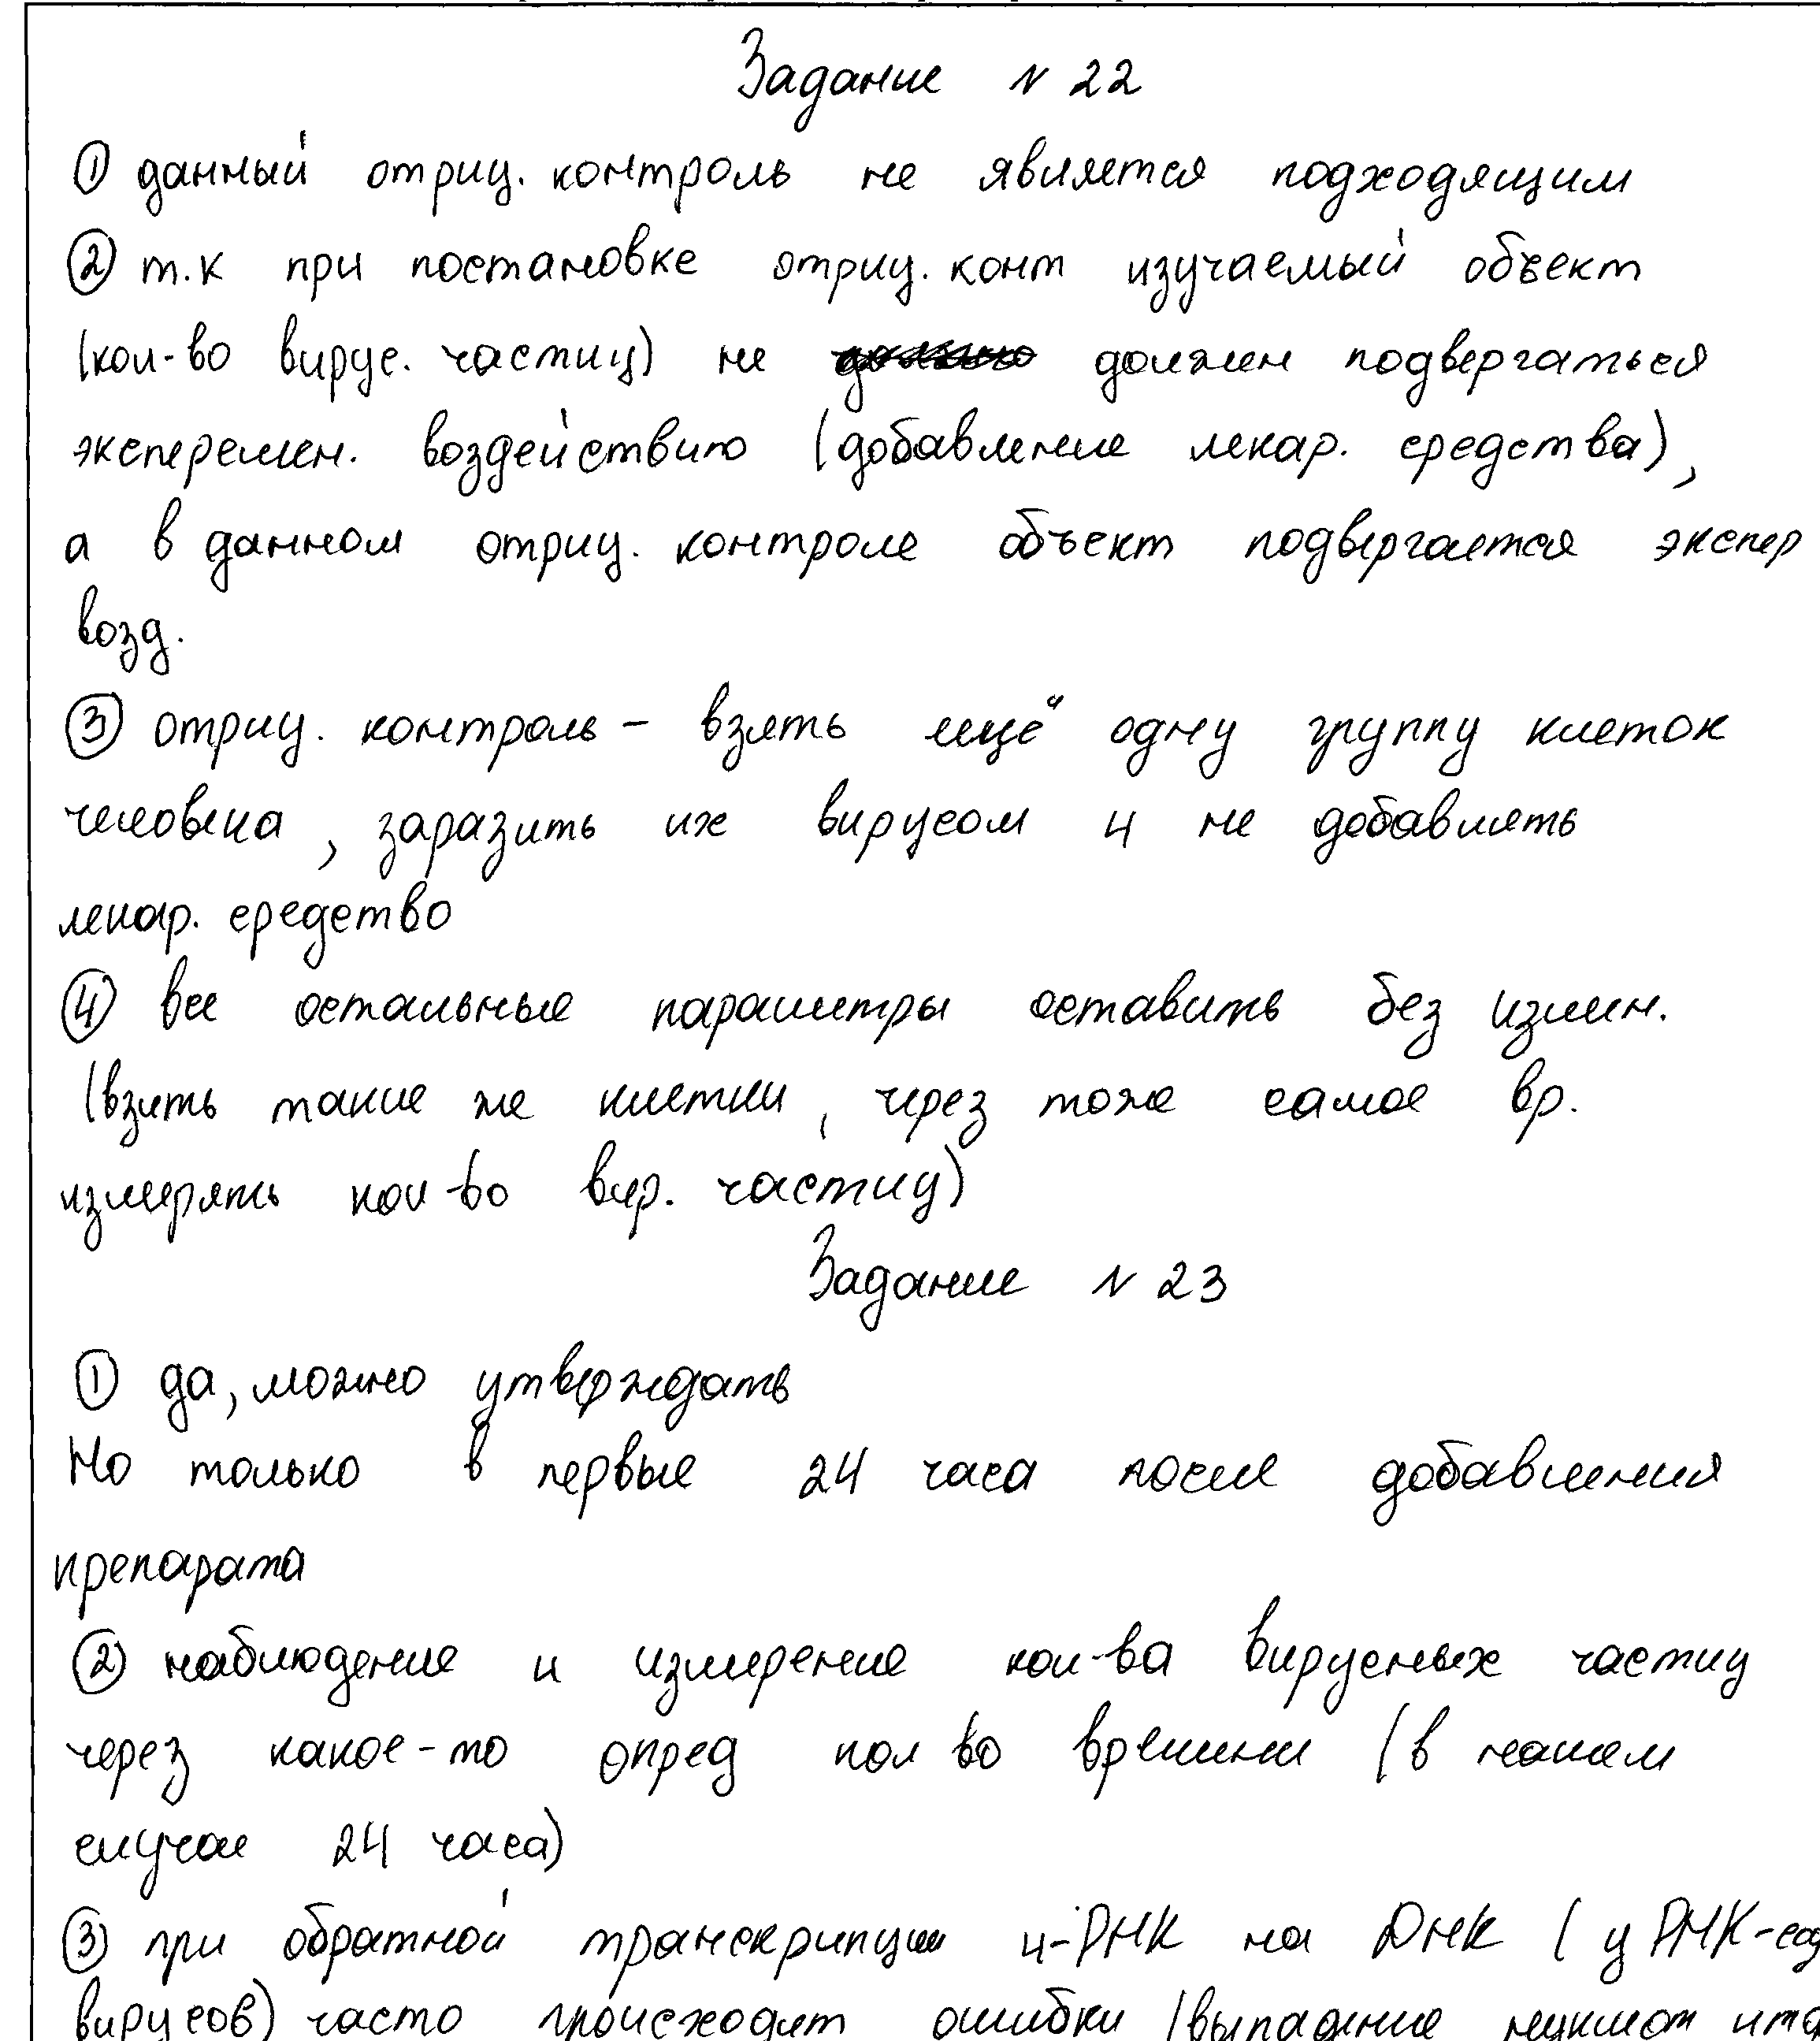 Задание N 22
① данный отриц. контроль не является подходящим
② т.к при постановке отриц. конт изучаемый объект
(кол-во вирус. частиц) не должен подвергаться
эксперемен. воздействию (добавление лекар. средства),
а в данном отриц. контроле объект подвергается экспер
возд.
③ отриц. контроль - взять ещё одну группу клеток
человека, заразить их вирусом и не добавлять
лекар. средство
④ все остальные параметры оставить без измен.
(взять такие же клетки, через тоже самое вр.
измерять кол-во вир. частиц)
Задание N 23
① да, можно утверждать
Но только в первые 24 часа после добавления
препарата
② наблюдение и измерение кол-ва вирусных частиц
через какое-то опред кол во времени (в нашем
случае 24 часа)
③ при обратной транскрипции и-РНК на ДНК (у РНК-сод
вирусов) часто происходит ошибки (выпадение нуклеот